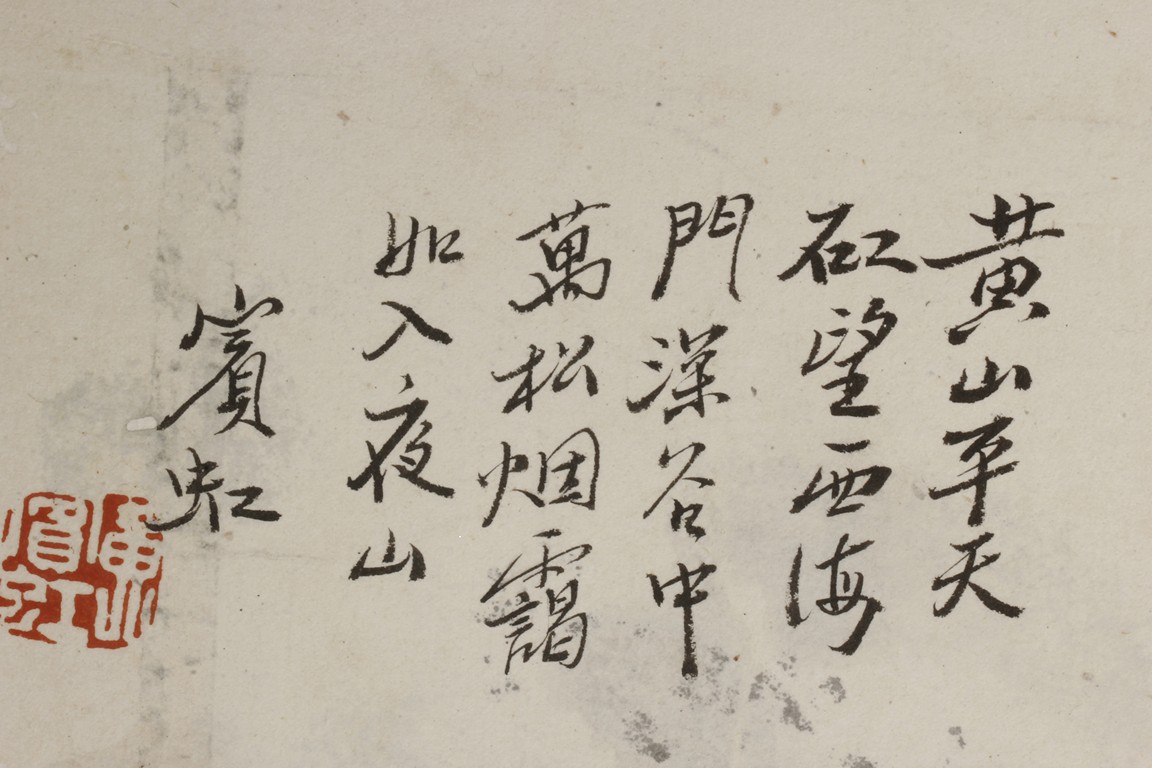 黃山平天
矼望西海
門深谷中
萬松烟靄
如入夜山
賓虹
黃賓虹